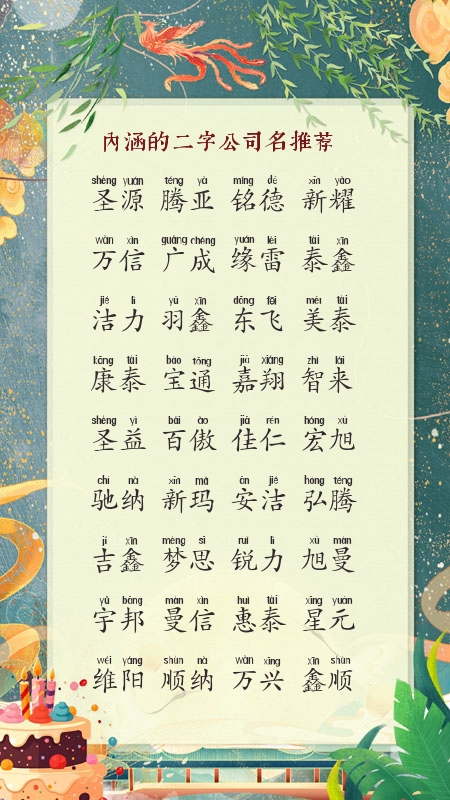 内涵的二字公司名推荐
shèng yuán téng yà míng dé xīn yào
圣源 腾亚 铭德 新耀
wàn xìn guǎng chéng yuán léi tài xīn
万信 广成 缘雷 泰鑫
jié lì yǔ xīn dōng fēi měi tài
洁力 羽鑫 东飞 美泰
kāng tài bǎo tōng jiā xiáng zhì lái
康泰 宝通 嘉翔 智来
shèng yì bǎi ào jiā rén hóng xù
圣益 百傲 佳仁 宏旭
chí nà xīn mǎ ān jié hóng téng
驰纳 新玛 安洁 弘腾
jí xīn mèng sī ruì lì xù màn
吉鑫 梦思 锐力 旭曼
yǔ bāng màn xìn huì tài xīng yuán
宇邦 曼信 惠泰 星元
wéi yáng shùn nà wàn xīng xīn shùn
维阳 顺纳 万兴 鑫顺